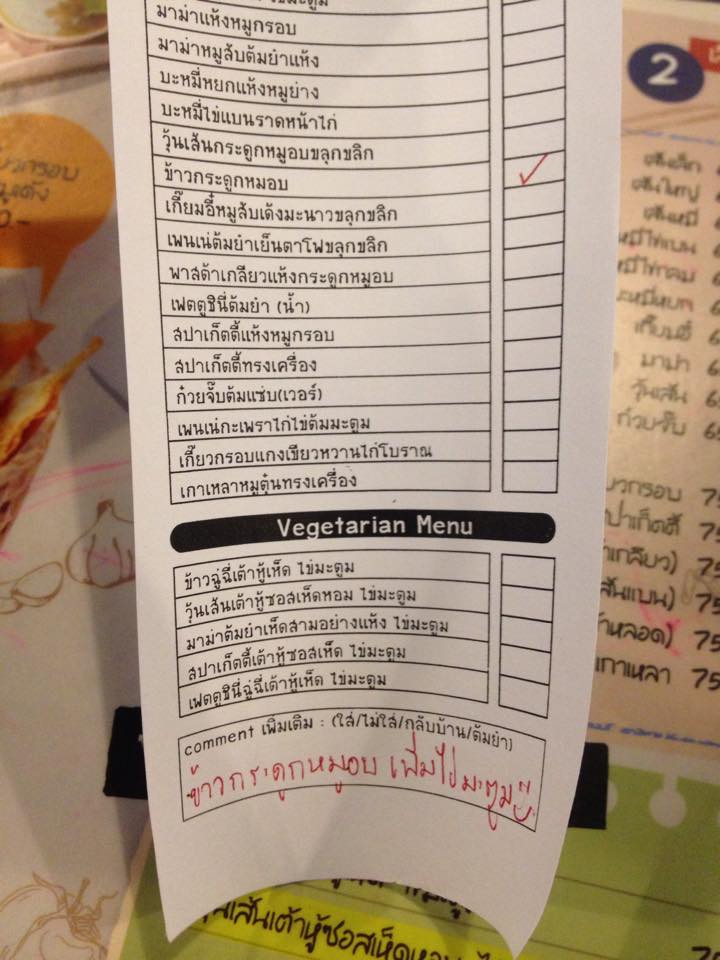 ไข่มะตูม
มาม่าแห้งหมูกรอบ
มาม่าหมูสับต้มยำแห้ง
บะหมี่หยกแห้งหมูย่าง
บะหมี่ไข่แบนราดหน้าไก่
วุ้นเส้นกระดูกหมูอบขลุกขลิก
ข้าวกระดูกหมอบ
เกี๊ยมอี๋หมูสับเด้งมะนาวขลุกขลิก
เพนเน่ต้มยำเย็นตาโฟขลุกขลิก
พาสต้าเกลียวแห้งกระดูกหมูอบ
เฟตตูชินี่ต้มยำ (น้ำ)
สปาเก็ตตี้แห้งหมูกรอบ
สปาเก็ตตี้ทรงเครื่อง
ก๋วยจั๊บต้มแซ่บ(เวอร์)
เพนเน่กะเพราไก่ไข่ต้มมะตูม
เกี๊ยวกรอบแกงเขียวหวานไก่โบราณ
เกาเหลาหมูตุ๋นทรงเครื่อง
Vegetarian Menu
ข้าวฉู่ฉี่เต้าหู้เห็ด ไข่มะตูม
วุ้นเส้นเต้าหู้ซอสเห็ดหอม ไข่มะตูม
มาม่าต้มยำเห็ดสามอย่างแห้ง ไข่มะตูม
สปาเก็ตตี้เต้าหู้ซอสเห็ด ไข่มะตูม
เฟตตูชินี่ฉู่ฉี่เต้าหู้เห็ด ไข่มะตูม
comment เพิ่มเติม : (ใส่/ไม่ใส่/กลับบ้าน/ต้มยำ)
ข้าวกระดูกหมูอบ เพิ่มไข่มะตูม
2
เส้นเล็ก
เส้นใหญ่
เส้นหมี่
เกี๊ยมอี๋ 6
มาม่า 6
วุ้นเส้น 6
ก๋วยจั๊บ
75
75
75
75
75
เกาเหลา 75